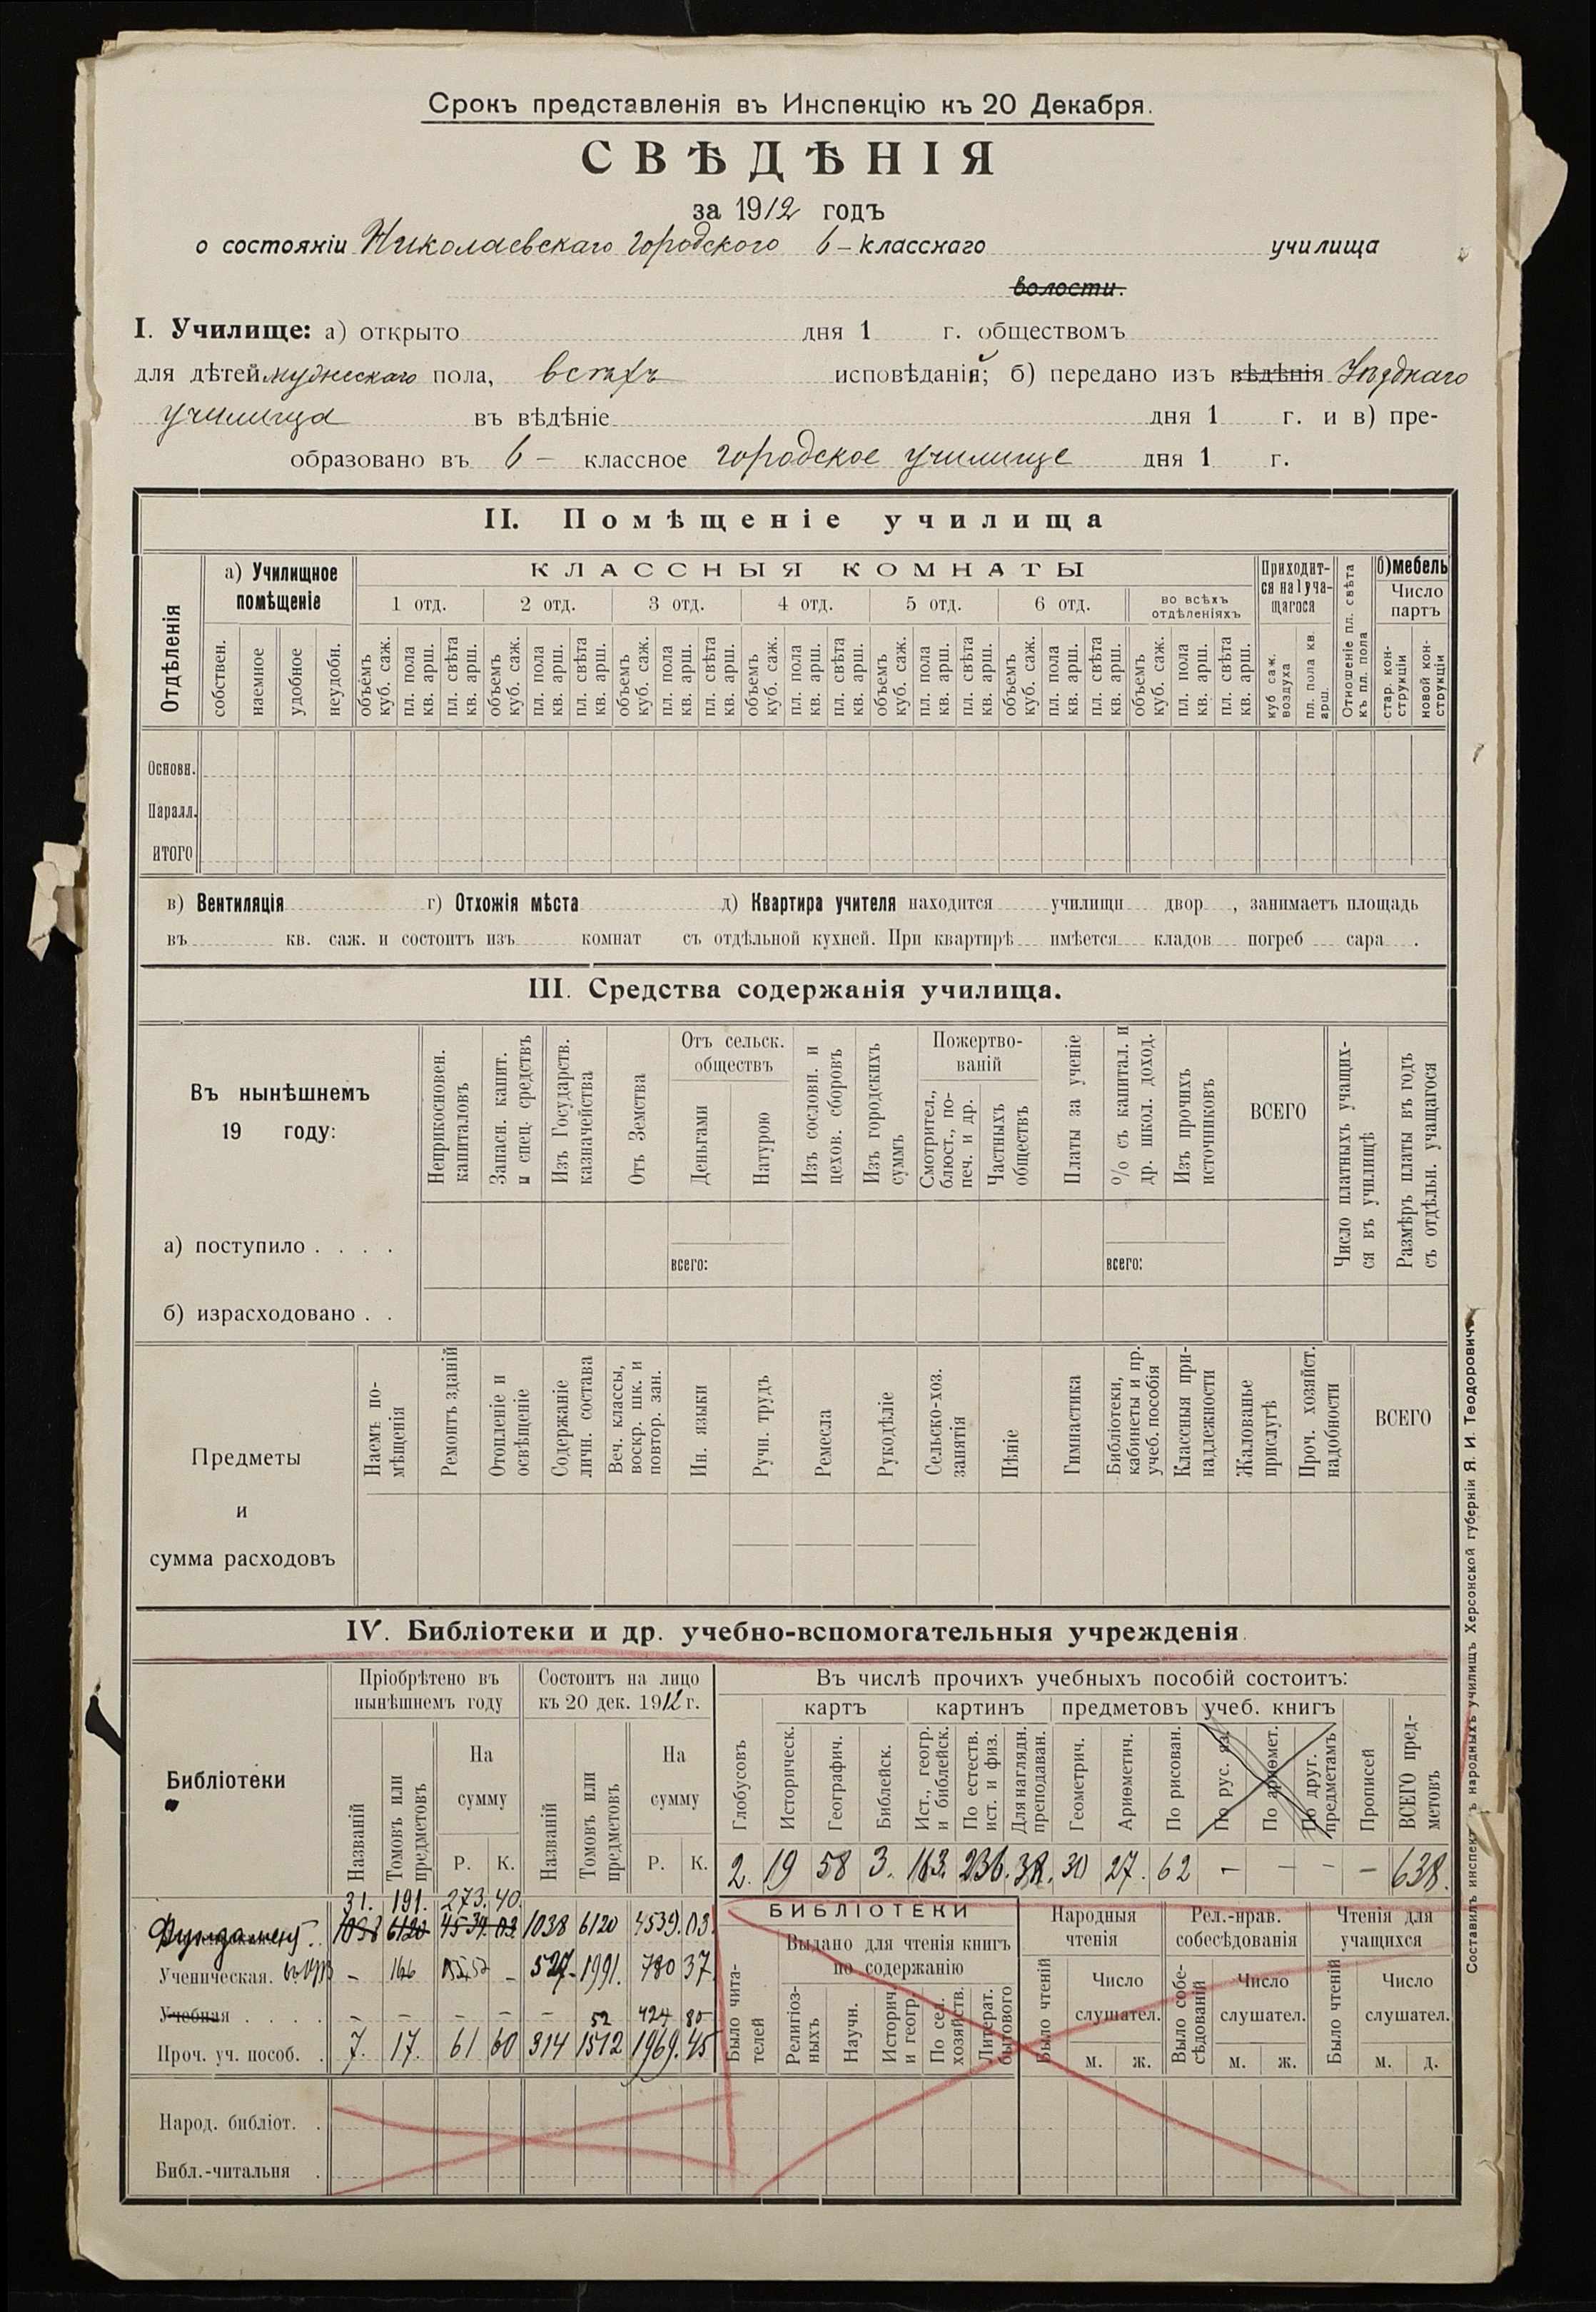 Срокъ представленія въ Инспекцію къ 20 Декабря.
СВѢДѢНІЯ
за 1912 годъ
о состояніи Николаевскаго городского 6-класснаго училища
волости.
I. Училище: а) открыто дня 1 г. обществомъ
для дѣтей мужескаго пола, всѣхъ исповѣданій; б) передано изъ вѣдѣнія Уѣзднаго
училища въ вѣдѣніе дня 1 г. и в) пре-
образовано въ 6- классное городское училище дня 1 г.
II. Помѣщеніе училища
Отдѣленія
а) Училищное помѣщеніе
собствен. наемное удобное неудобн.
КЛАССНЫЯ КОМНАТЫ
1 отд. 2 отд. 3 отд. 4 отд. 5 отд. 6 отд. во всѣхъ отдѣленіяхъ
объемъ куб. саж. пл. пола кв. арш. пл. свѣта кв. арш.
объемъ куб. саж. пл. пола кв. арш. пл. свѣта кв. арш.
объемъ куб. саж. пл. пола кв. арш. пл. свѣта кв. арш.
объемъ куб. саж. пл. пола кв. арш. пл. свѣта кв. арш.
объемъ куб. саж. пл. пола кв. арш. пл. свѣта кв. арш.
объемъ куб. саж. пл. пола кв. арш. пл. свѣта кв. арш.
объемъ куб. саж. пл. пола кв. арш. пл. свѣта кв. арш.
Приходит-
ся на 1 уча-
щагося
куб. саж. воздуха пл. пола кв. арш.
Отношеніе пл. свѣта къ пл. пола
б) мебель
Число партъ
стар. кон-струкціи новой кон-струкціи
Основн.
Паралл.
ИТОГО
в) Вентиляція г) Отхожія мѣста д) Квартира учителя находится училищн двор , занимаетъ площадь
въ кв. саж. и состоитъ изъ комнат съ отдѣльной кухней. При квартирѣ имѣется кладов погреб сара .
III. Средства содержанія училища.
Въ нынѣшнемъ
19 году:
Неприкосновен. капиталовъ
Запасн. капит. и спец. средствъ
Изъ Государств. казначейства
Отъ Земства
Отъ сельск. обществъ
Деньгами Натурою
Изъ сословн. и цехов. сборовъ
Изъ городскихъ суммъ
Пожертво-ваній
Смотрител., блюст., по-печ. и др. Частныхъ обществъ
Платы за ученіе
% съ капитал. и др. школ. доход.
Изъ прочихъ источниковъ
ВСЕГО
Число платныхъ учащих-ся въ училищѣ
Размѣръ платы въ годъ съ отдѣльн. учащагося
а) поступило . . . .
всего: всего:
б) израсходовано . .
Предметы
и
сумма расходовъ
Наемъ по-мѣщенія
Ремонтъ зданій
Отопленіе и освѣщеніе
Содержаніе личн. состава
Веч. классы, воскр. шк. и повтор. зан.
Ин. языки
Ручн. трудъ
Ремесла
Рукодѣліе
Сельско-хоз. занятія
Пѣніе
Гимнастика
Библіотеки, кабинеты и пр. учеб. пособія
Классныя при-надлежности
Жалованье прислугѣ
Проч. хозяйст. надобности
ВСЕГО
IV. Библіотеки и др. учебно-вспомогательныя учрежденія.
Библіотеки
Пріобрѣтено въ нынѣшнемъ году
Названій Томовъ или предметовъ На сумму Р. К.
Состоитъ на лицо къ 20 дек. 1912 г.
Названій Томовъ или предметовъ На сумму Р. К.
Въ числѣ прочихъ учебныхъ пособій состоитъ:
Глобусовъ
картъ
Историческ. Географич. Библейск.
картинъ
Ист., геогр. и библейск. По естеств. ист. и физ. Для наглядн. преподаван.
предметовъ
Геометрич. Ариѳметич. По рисован.
учеб. книгъ
По рус. яз. По ариѳмет. По друг. предметамъ
Прописей
ВСЕГО пред-метовъ
2. 19 58 3. 163. 236. 38. 30 27. 62 – – – – 638.
31. 191. 273. 40.
Фундамент. 1038 6120 4539. 03. 1038 6120 4539. 03.
Ученическая. – 166 – 527 1991. 780 37.
Учебная . . . . – – – – – 52 424 85
Проч. уч. пособ. . 7. 17. 61 60 314 1512 1969. 45
Народ. библіот. .
Библ.-читальня .
БИБЛІОТЕКИ
Было чита-телей
Выдано для чтенія книгъ по содержанію
Религіоз-ныхъ Научн. Историч. и геогр. По сел. хозяйств. Литерат. бытового
Народныя чтенія
Было чтеній Число слушател. м. ж.
Рел.-нрав. собесѣдованія
Было собе-сѣдованій Число слушател. м. ж.
Чтенія для учащихся
Было чтеній Число слушател. м. д.
Составилъ инспект ъ народныхъ училищъ Херсонской губерніи Я. И. Теодоровичъ